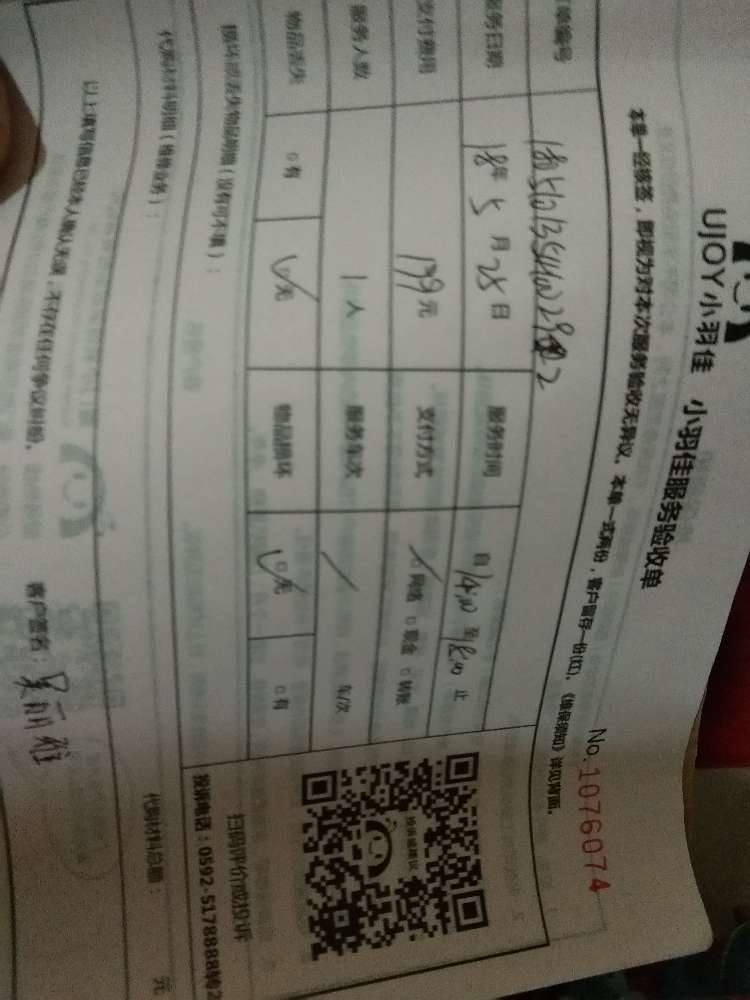 UJOY小羽佳 小羽佳服务验收单
No.1076074
本单一经接签，即视为对本次服务验收无异议。本单一式两份，客户留存一份(红)，《维保须知》详见背面。
单编号
服务日期 18年5月25日 服务时间 自14:00至18:00止
支付费用 199元 支付方式 网络 现金 转账
服务人数 1人 服务车次 / 车/次
物品丢失 有 无 物品损坏 无 有
损坏或丢失物品明细（没有可不填）：
投诉或建议
扫码评价或投诉
投诉电话：0592-5178888转2
代购材料明细（维修业务）：
代购材料总额： 元
以上填写信息已经本人确认无误，不存在任何争议纠纷。
客户签名：